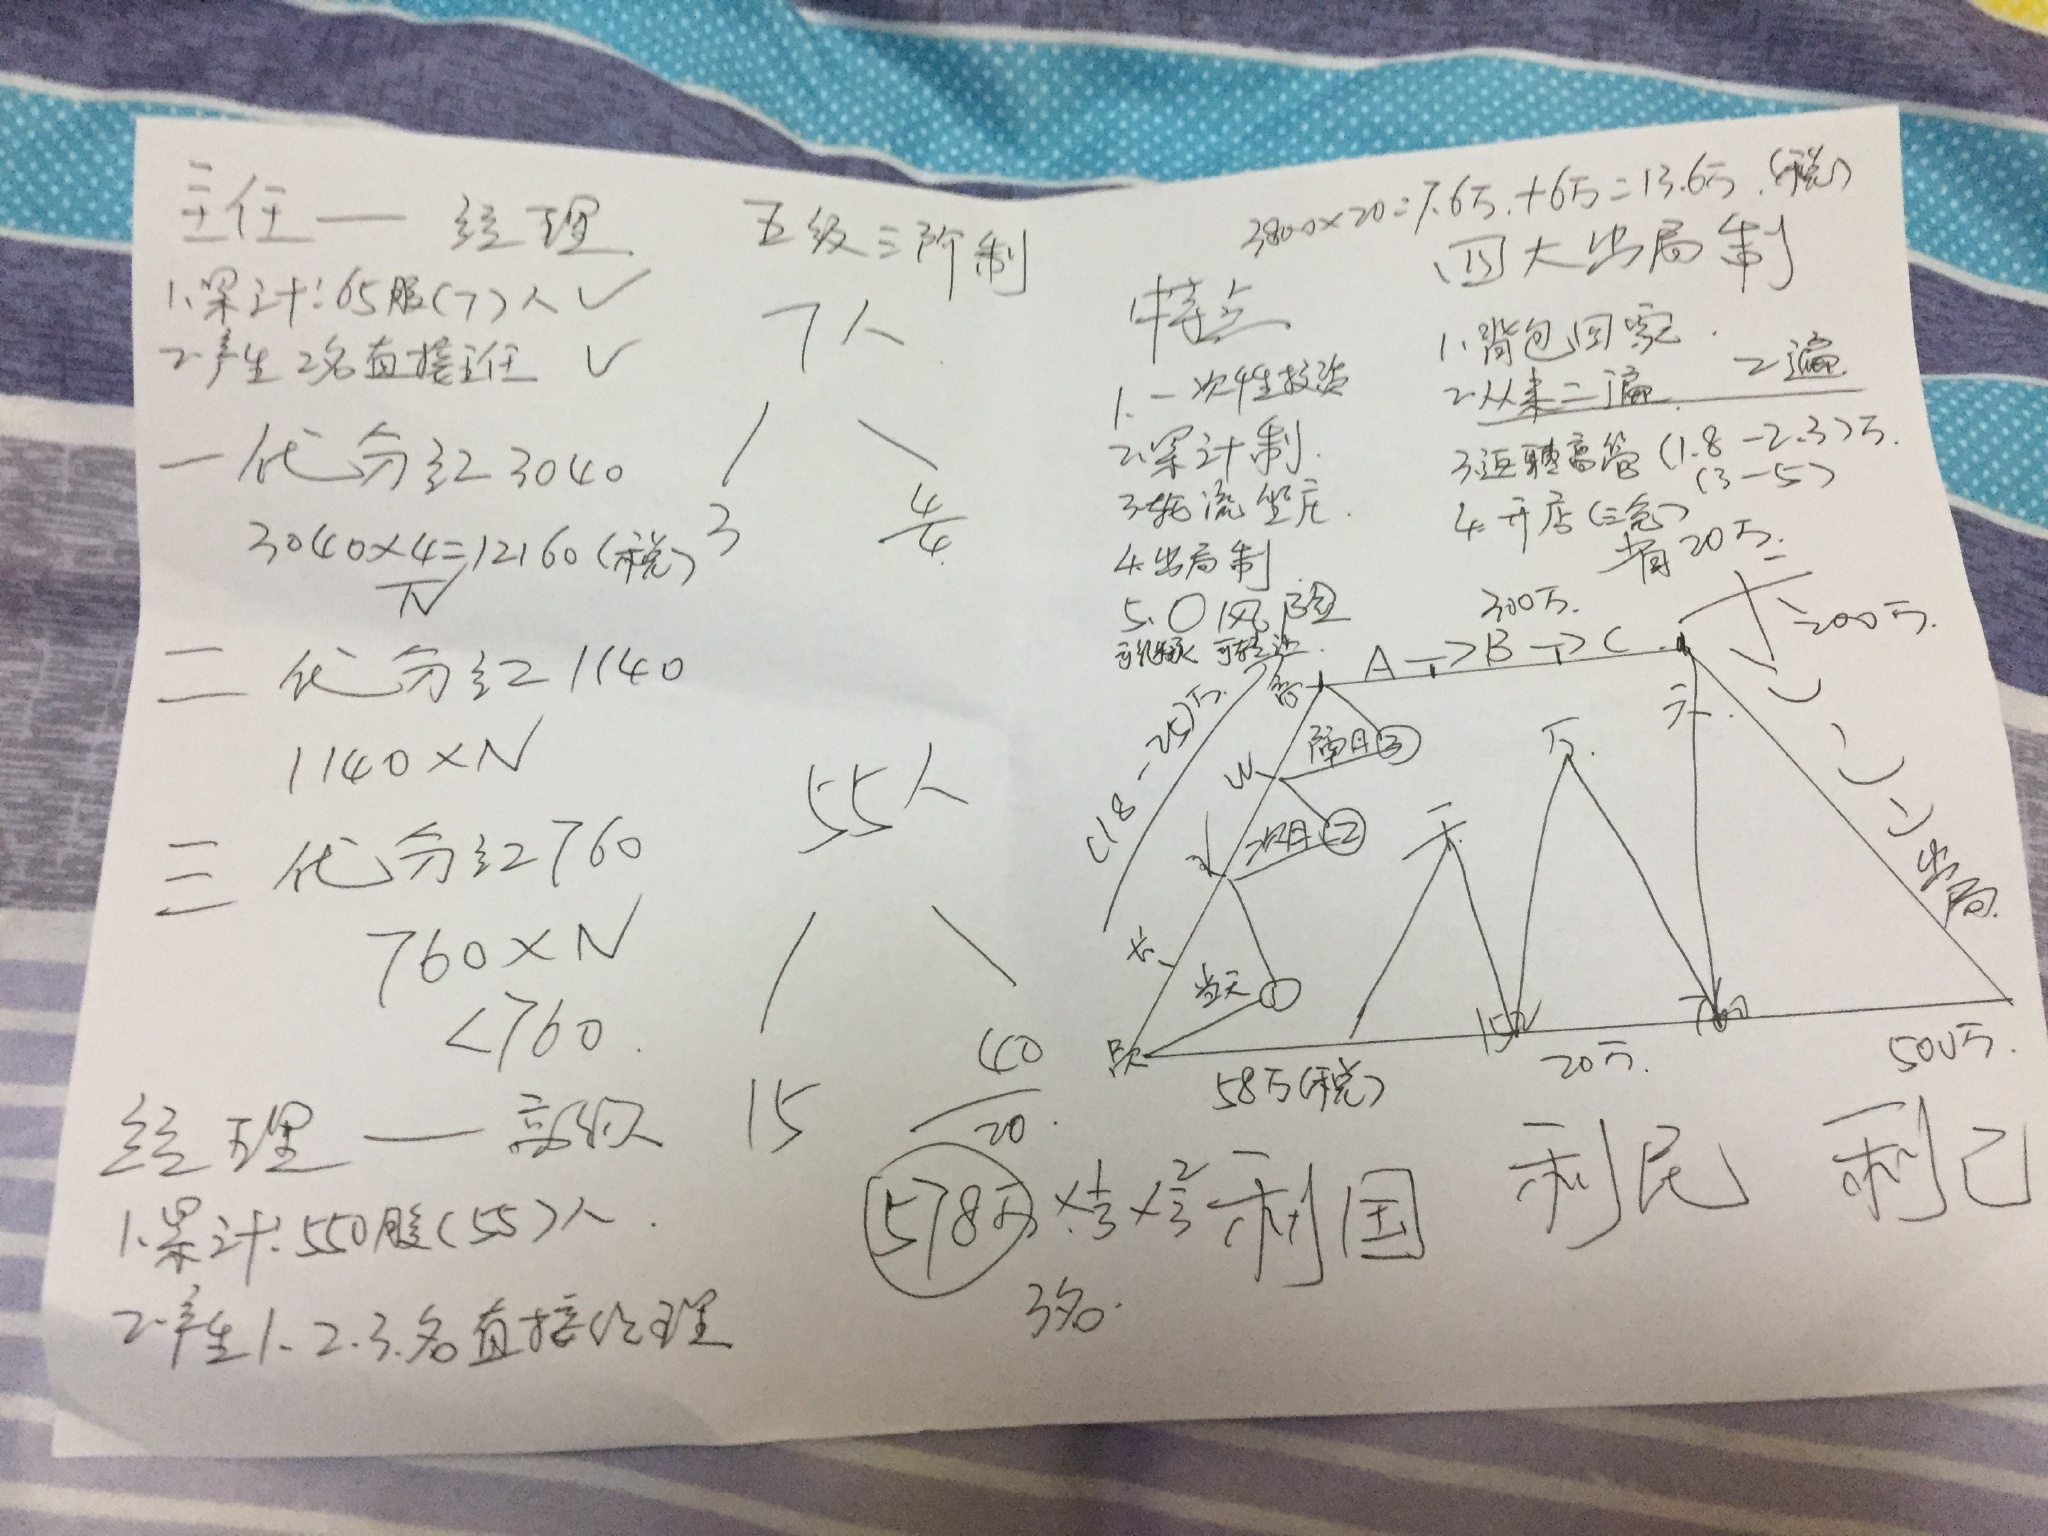 主任—经理
五级三阶制
1.累计:65股(7)人✓
2.产生2名直接主任 ✓
7人
3
4
4
一代分红3040
3040×4=12160(税)
N
二代分红1140
1140×N
三代分红760
760×N
<760.
55人
15
40
20.
经理—高级
1.累计:550股(55)人.
2.产生1.2.3.名直接经理
3800×20=7.6万.+6万=13.6万.(税)
四大出局制
特点
1.一次性投资
2.累计制.
3.轮流坐庄.
4.出局制
5.0风险
1.背包回家.
2.从来二遍. 2遍
3.返聘高管(1.8-2.3)万.
(3-5)
4.开店(三免)
省20万.
300万.
A→B→C
200万.
(18-25)万.
隔月③
次月②
当天①
万.
出局.
58万(税)
20万.
500万.
578万
3名.
利国 利民 利己